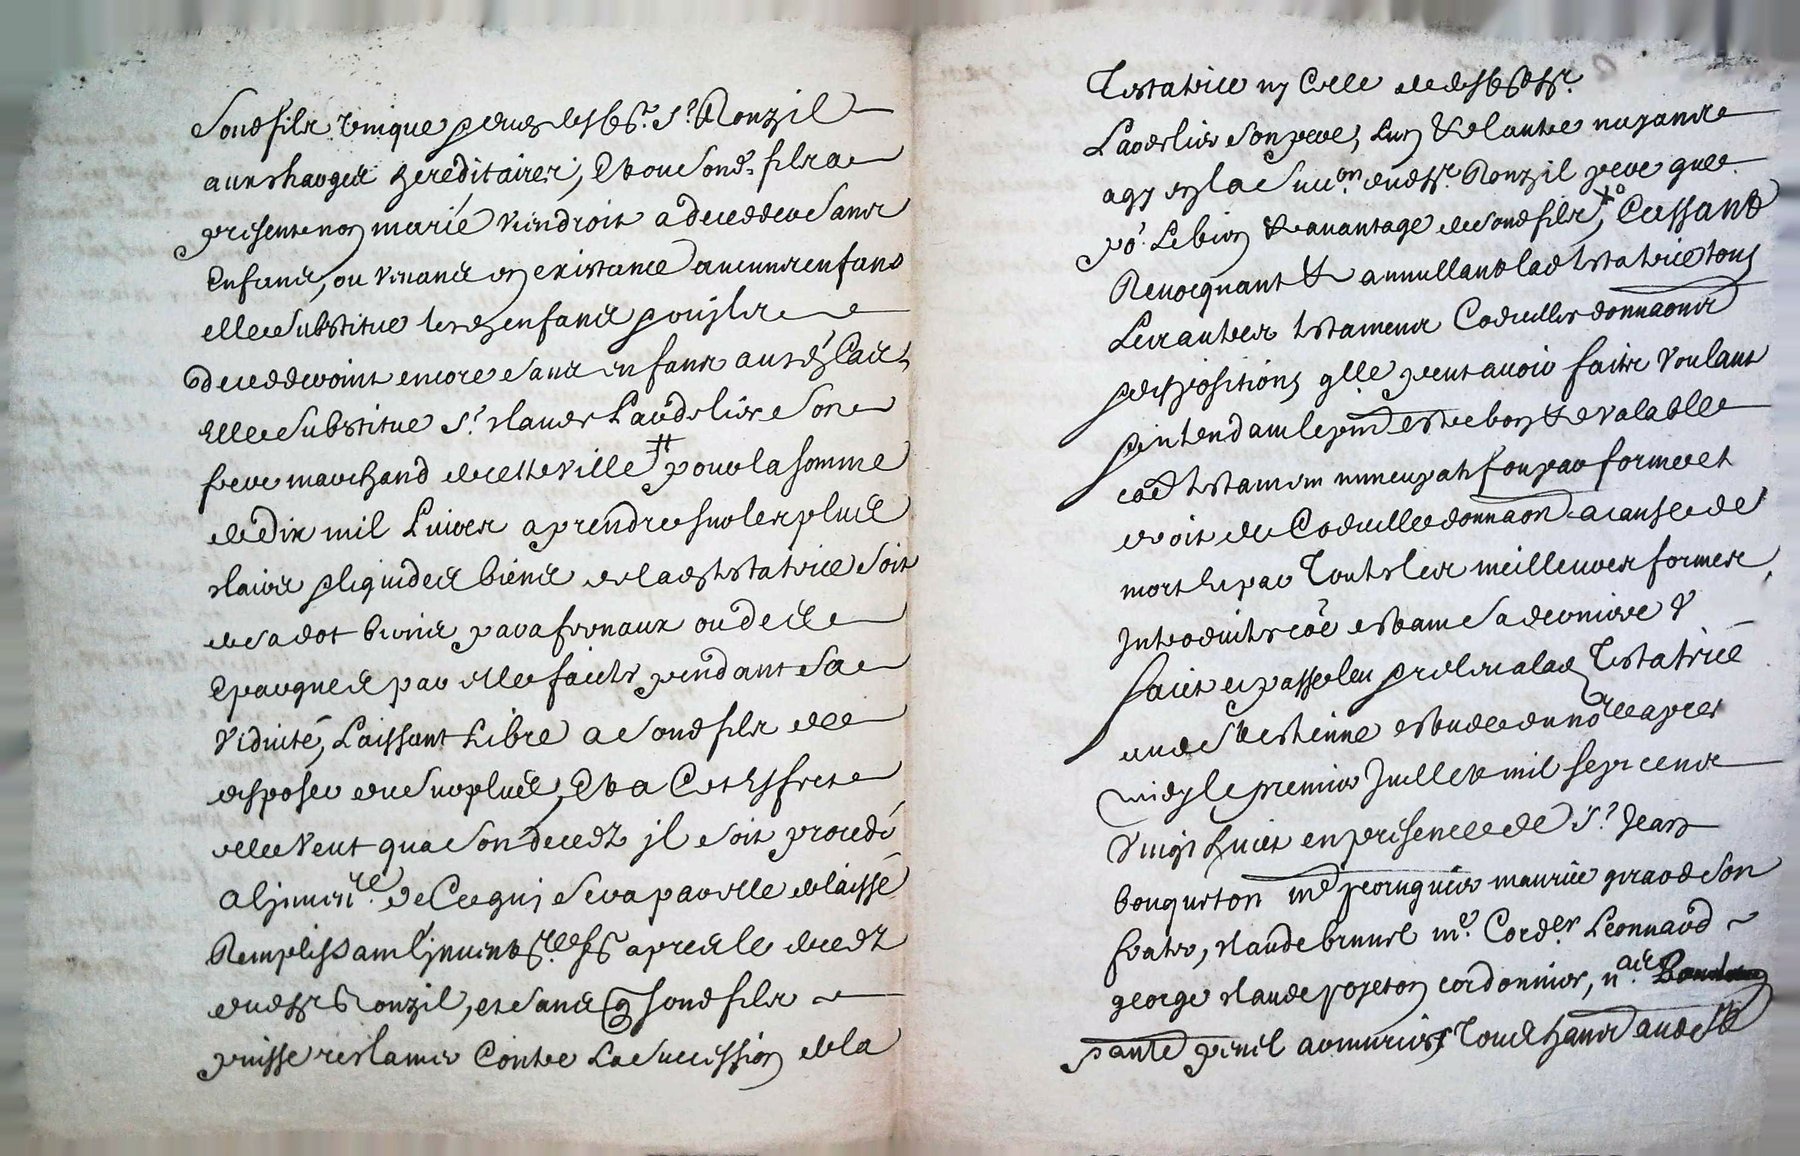 Sond fils unique & dud defft Sr. Ronzil
aux charges hereditaires, Et ou Sond. fils a
present non marié viendroit a decedder Sans
Enfans, ou venans en existance aucuns enfans
elle Substitue lesd enfans & sy ils
decedderoint encore Sans enfans aud Cas,
Elle Substitue Sr. Claude Laderlier Son
frere marchand de cette ville # pour la Somme
de dix mil Livres a prendre sur les plus
claires & liquides biens de lad Testatrice Soit
de Sa dot biens parafernaux ou des
Epargnes par elle faites pendant Sa
Viduité, Laissant Libre a Sond fils de
disposer du Surplus, Et a Cet Effet
elle Veut qua Son decedz il Soit procedé
a Linvre. de Ce qui Sera par elle delaissé
Remplissant Linvent apres le decedz
dud Sr Ronzil, et Sans que Sond fils
puisse reclamer Contre La Succession de la
Testatrice ny Celle dud defft Sr.
Laderlier Son pere, Lun & Lautre nayants
agy en la Succon. dud Sr. Ronzil pere que
po. Le bien & avantage de Sond fils, Cassant
Revocquant & annullant lad testatrice tous
Les autres testamens Codicilles donnaons
& dispositions qlle peut avoir faits Voulant
& entendant le pnt estre bon & valable
co testament nuncupatif ou par forme et
droit de Codicille donnaon a cause de
mort et par Toutes les meilleures formes
Introduites coe estant Sa derniere V
faict et passé leu & relu a lad Testatrice
aud St Estienne estude du nore apres
midy le premier Juillet mil Sept cens
Vingt huict en presence de Sr. Jean
bouqueton md perruquier maurice girard Son
frater, claude brunel me. Corder Leonnard
george claude poyeton cordonnier, n.
armurier Tous habans aud St